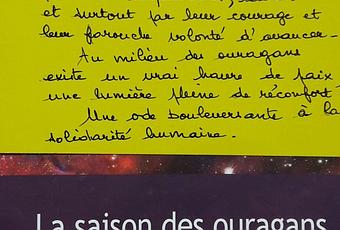 et surtout par leur courage et
leur farouche volonté d'avancer.
Au milieu des ouragans
existe un vrai havre de paix
une lumière pleine de réconfort
Une ode bouleversante à la
solidarité humaine.
La saison des ouragans